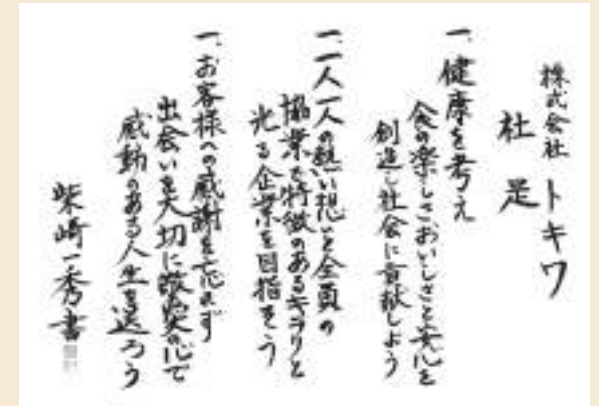 株式会社 トキワ
社 是
一、健康を考え
食の楽しさおいしさと安心を
創造し社会に貢献しよう
一、一人一人の熱い想いと全員の
協業で特徴のあるキラリと
光る企業を目指そう
一、お客様への感謝を忘れず
出会いを大切に誠実の心で
感動のある人生を送ろう
柴崎一秀書